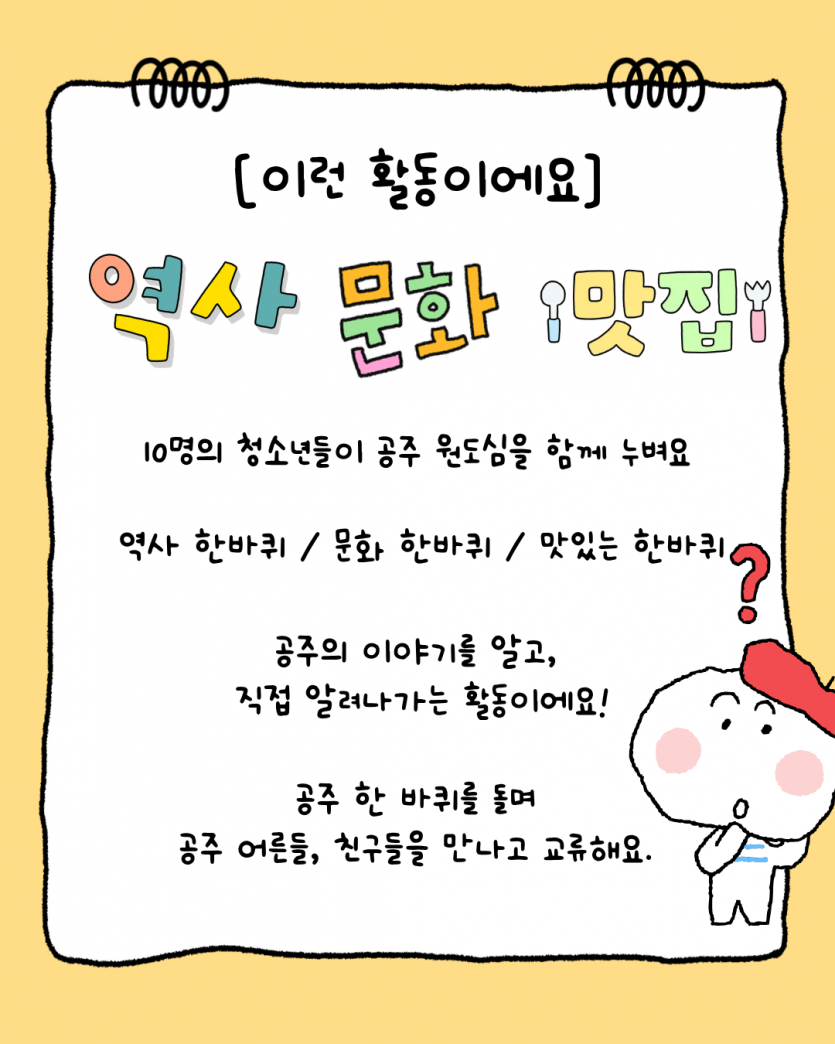 [이런 활동이에요]
역사 문화 맛집
10명의 청소년들이 공주 원도심을 함께 누벼요
역사 한바퀴 / 문화 한바퀴 / 맛있는 한바퀴
?
공주의 이야기를 알고,
직접 알려나가는 활동이에요!
공주 한 바퀴를 돌며
공주 어른들, 친구들을 만나고 교류해요.